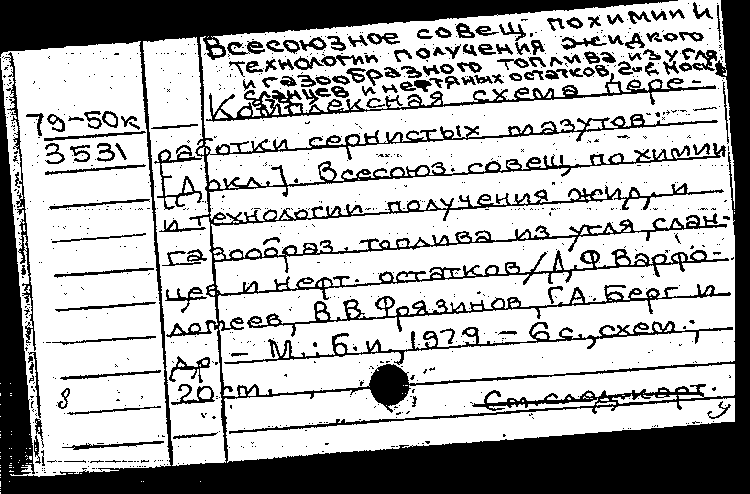 Всесоюзное совещ. по химии и
технологии получения жидкого
и газообразного топлива из угля,
сланцев и нефтяных остатков, 2-е, Москва
Комплексная схема пере-
79-50к
3531
работки сернистых мазутов:
[Докл.]. Всесоюз. совещ. по химии
и технологии получения жид. и
газообраз. топлива из угля, слан-
цев и нефт. остатков / Д.Ф. Варфо-
ломеев, В.В. Фрязинов, Г.А. Берг и
др. - М.: Б.и, 1979. - 6 с., схем.;
20 см.
8
См. след. карт.